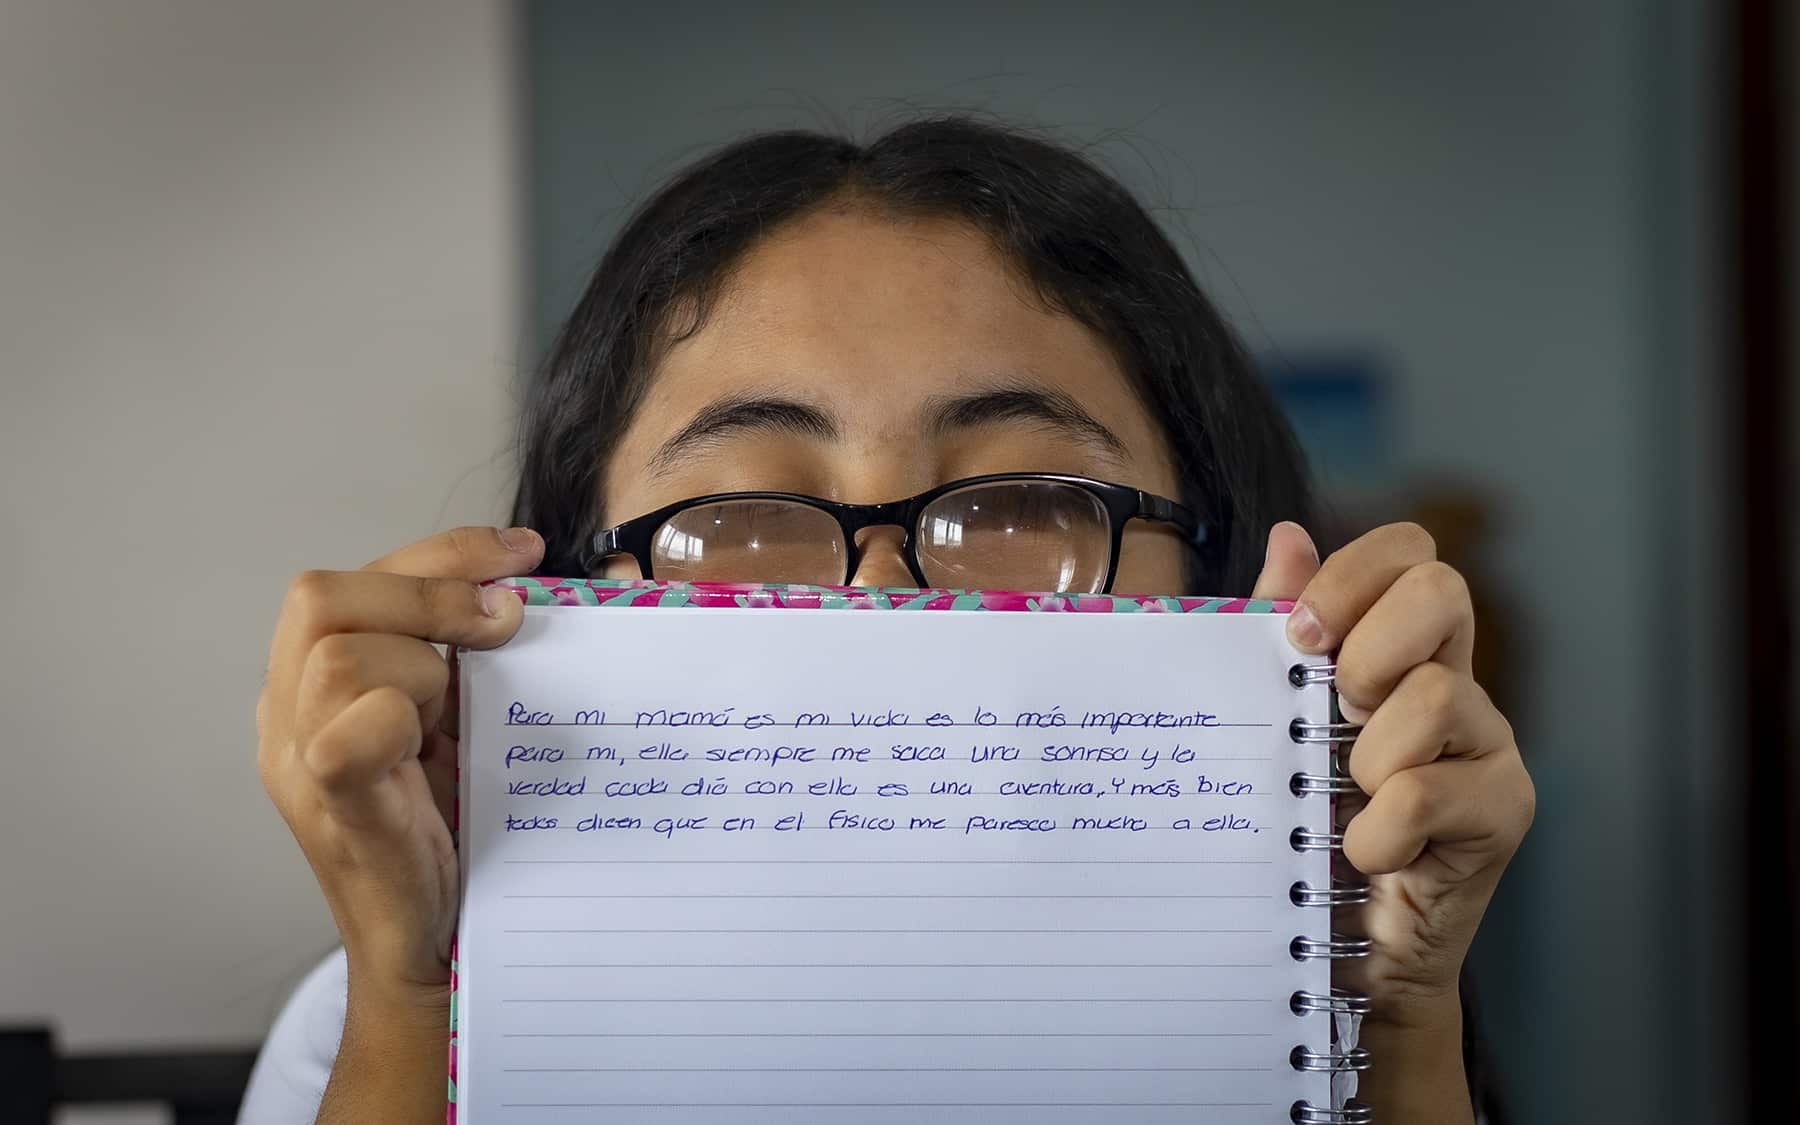 Para mi mamá es mi vida es lo más importante
para mi, ella siempre me saca una sonrisa y la
verdad cada diá con ella es una aventura,. Y más bien
todos dicen que en el físico me paresco mucho a ella.